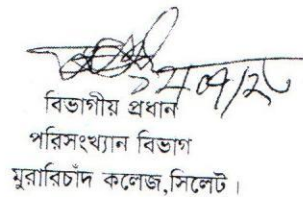 বিভাগীয় প্রধান
পরিসংখ্যান বিভাগ
মুরারিচাঁদ কলেজ,সিলেট।